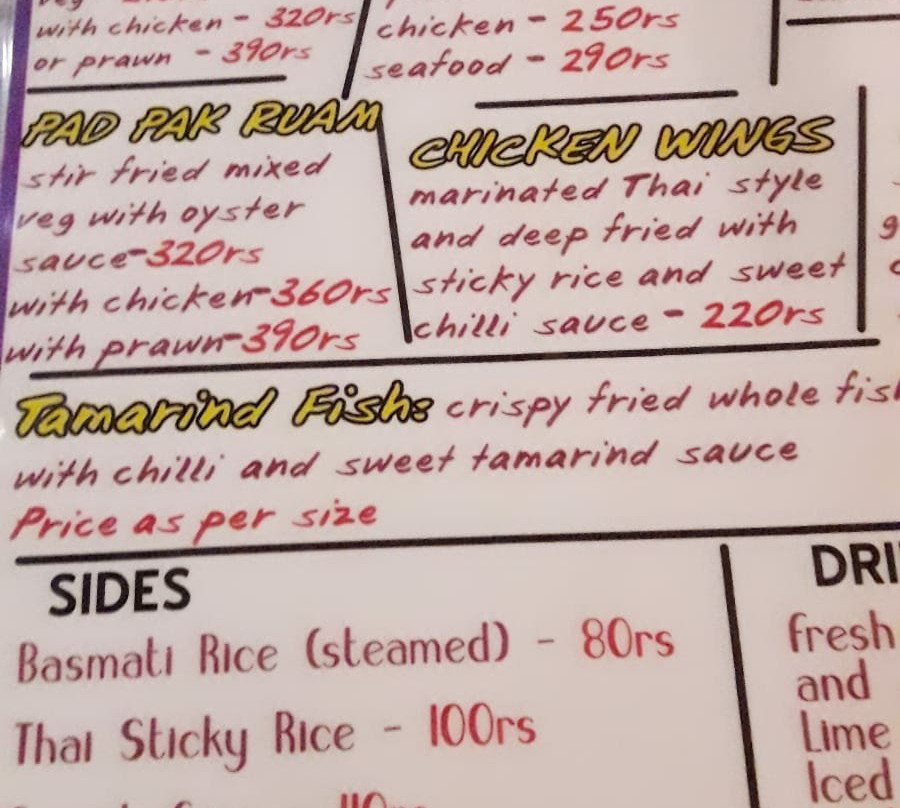 with chicken - 320rs
or prawn - 390rs
chicken - 250rs
seafood - 290rs
PAD PAK RUAM
stir fried mixed
veg with oyster
sauce-320rs
with chicken-360rs
with prawn-390rs
CHICKEN WINGS
marinated Thai style
and deep fried with
sticky rice and sweet
chilli sauce - 220rs
Tamarind Fish: crispy fried whole
with chilli and sweet tamarind sauce
Price as per size
SIDES
Basmati Rice (steamed) - 80rs
Thai Sticky Rice - 100rs
fresh
and
Lime
Iced